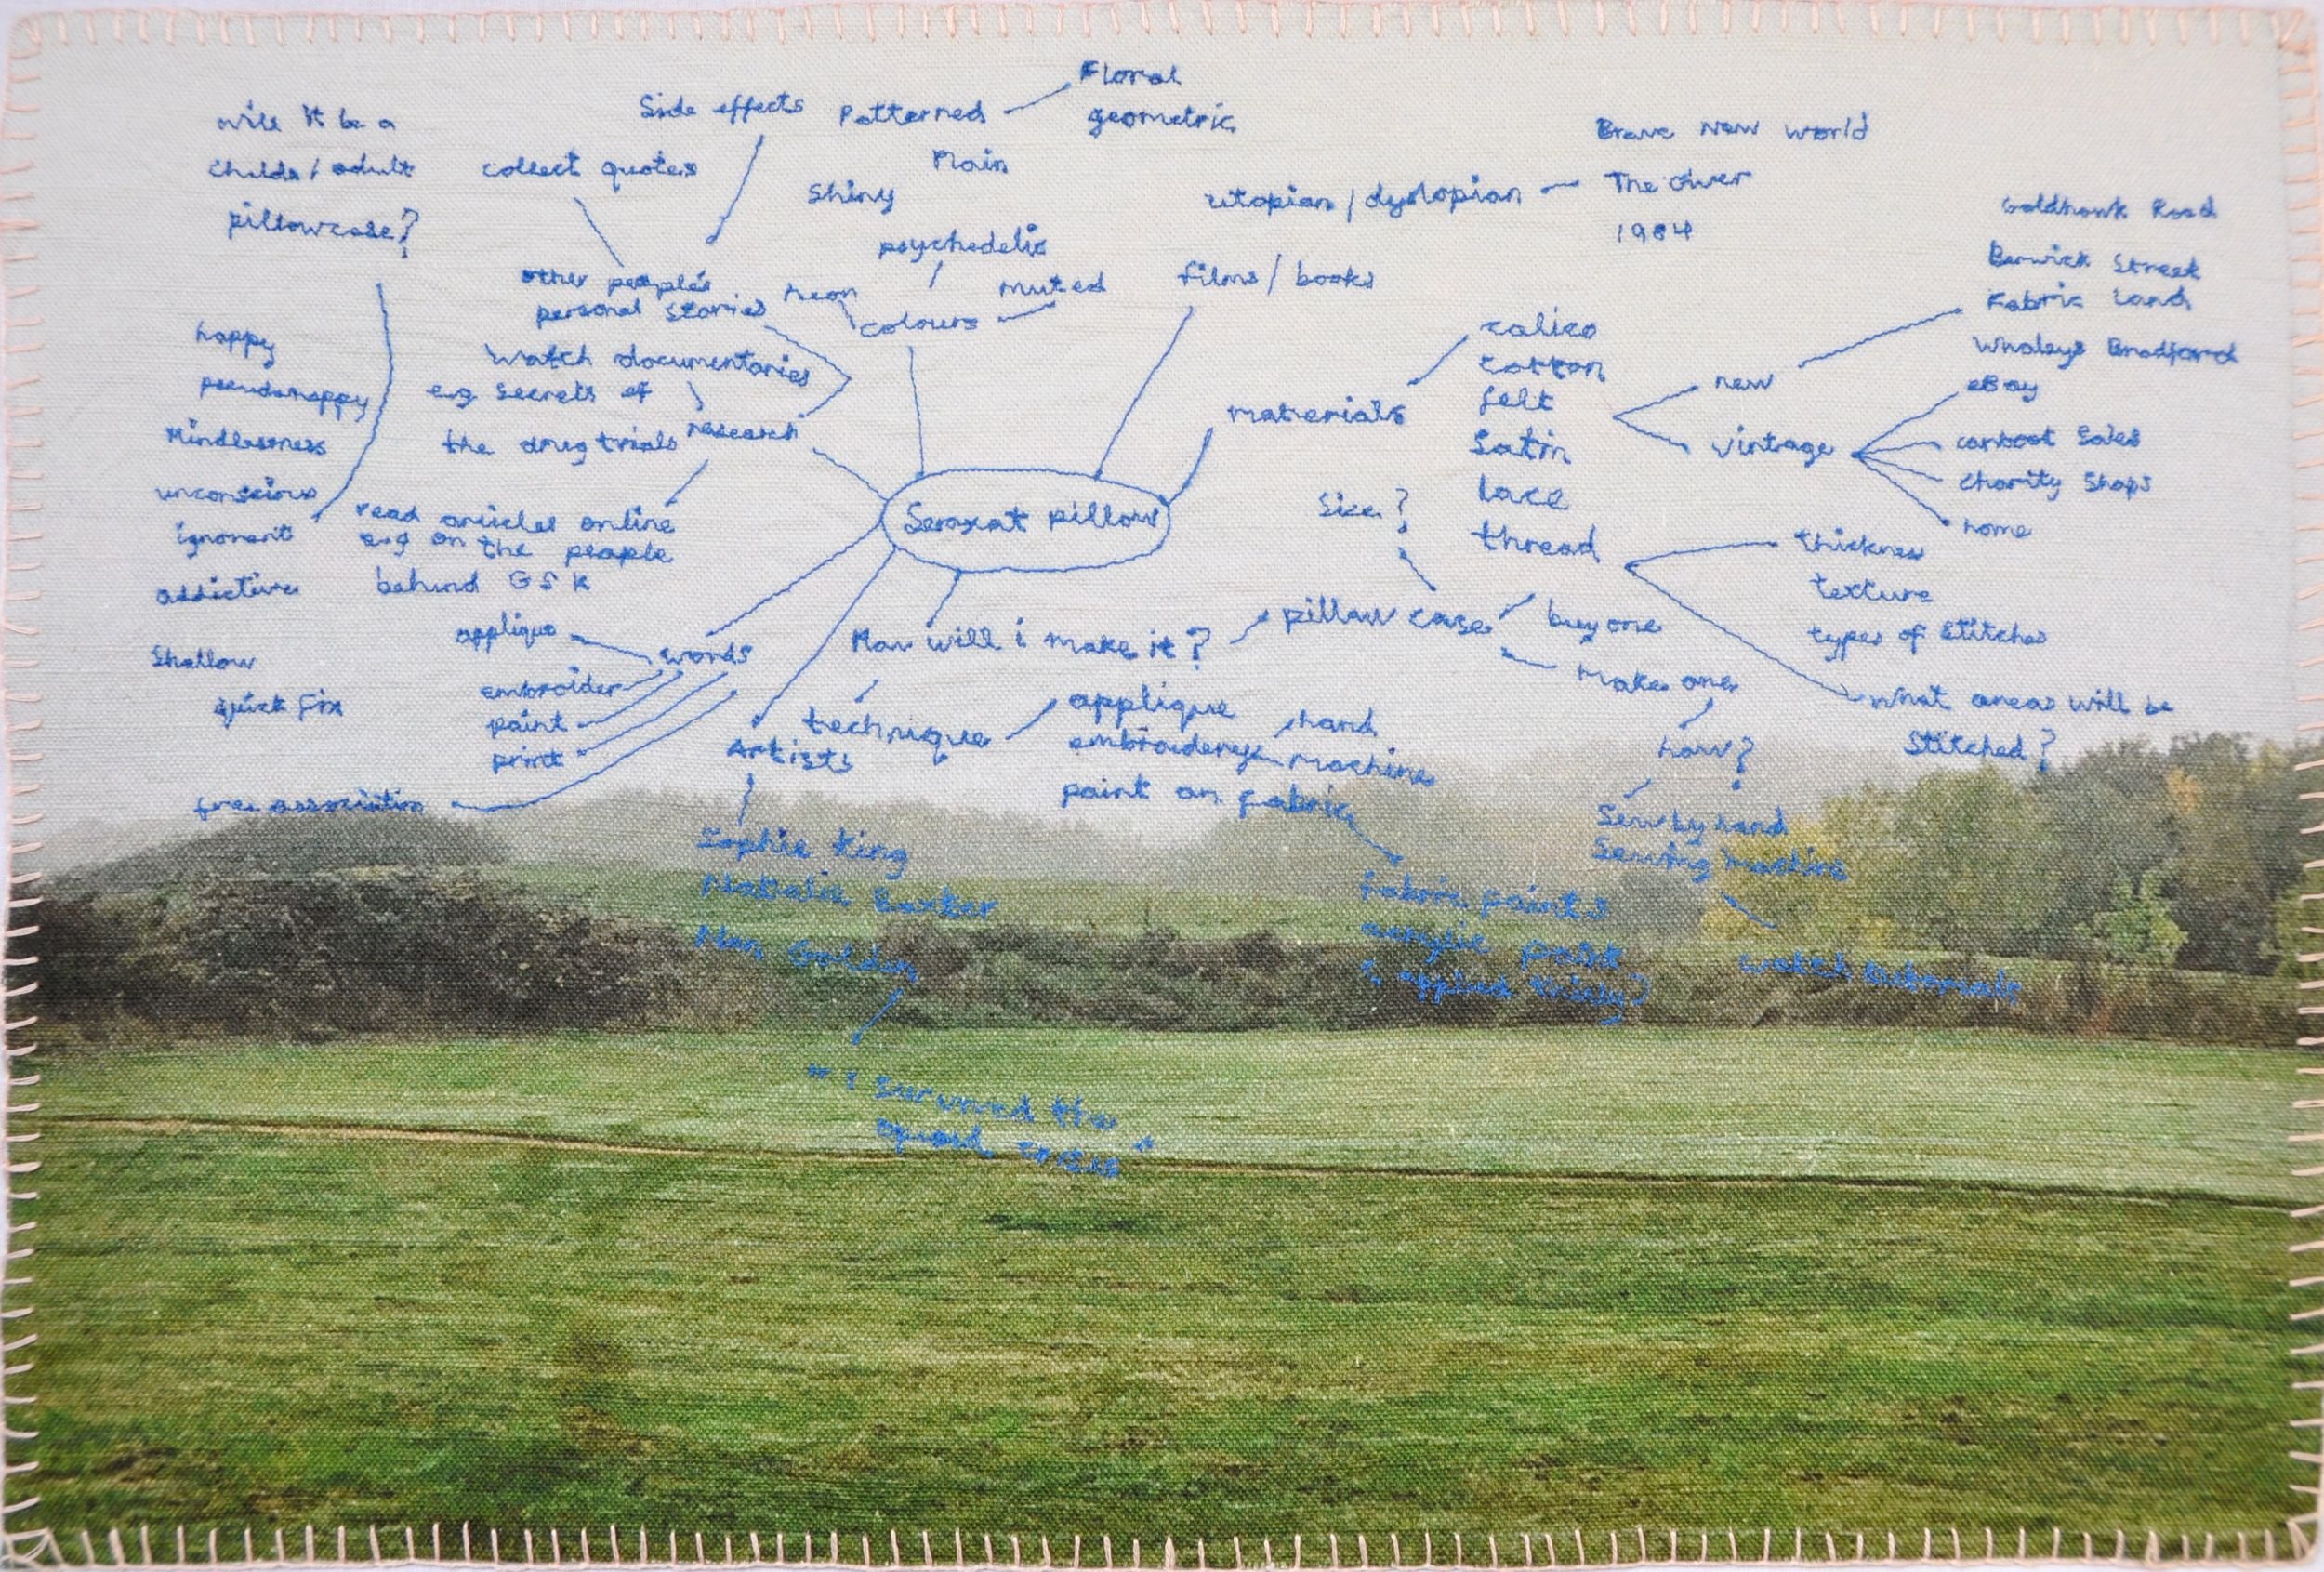 will it be a
childs / adult
pillowcase?
happy
pseudohappy
Mindlessness
unconscious
ignorant
addictive
Shallow
quick fix
free association
Side effects
collect quotes
other people's
personal stories
watch documentaries
e.g secrets of
the drug trials
research
read articles online
e.g on the people
behind GSK
applique
words
embroider
paint
print
Patterned
Floral
geometric
Plain
Shiny
psychedelic
neon
muted
colours
films / books
utopian / dystopian
Brave New World
The Giver
1984
Seroxat pillow
materials
calico
cotton
felt
Satin
lace
thread
new
vintage
Goldhawk Road
Berwick Street
Fabric Land
Whaleys Bradford
eBay
carboot Sales
charity Shops
home
thickness
texture
types of Stitches
What areas will be
Stitched?
Size?
pillow case
buy one
Make one
how?
Sew by hand
Sewing machine
watch tutorials
How will i make it?
technique
applique
embroidery
hand
machine
paint on fabric
fabric paints
acrylic paint
( applied thinly)
Artists
Sophie King
Natalie Baxter
Nan Goldin
" I Survived the
opioid crisis "